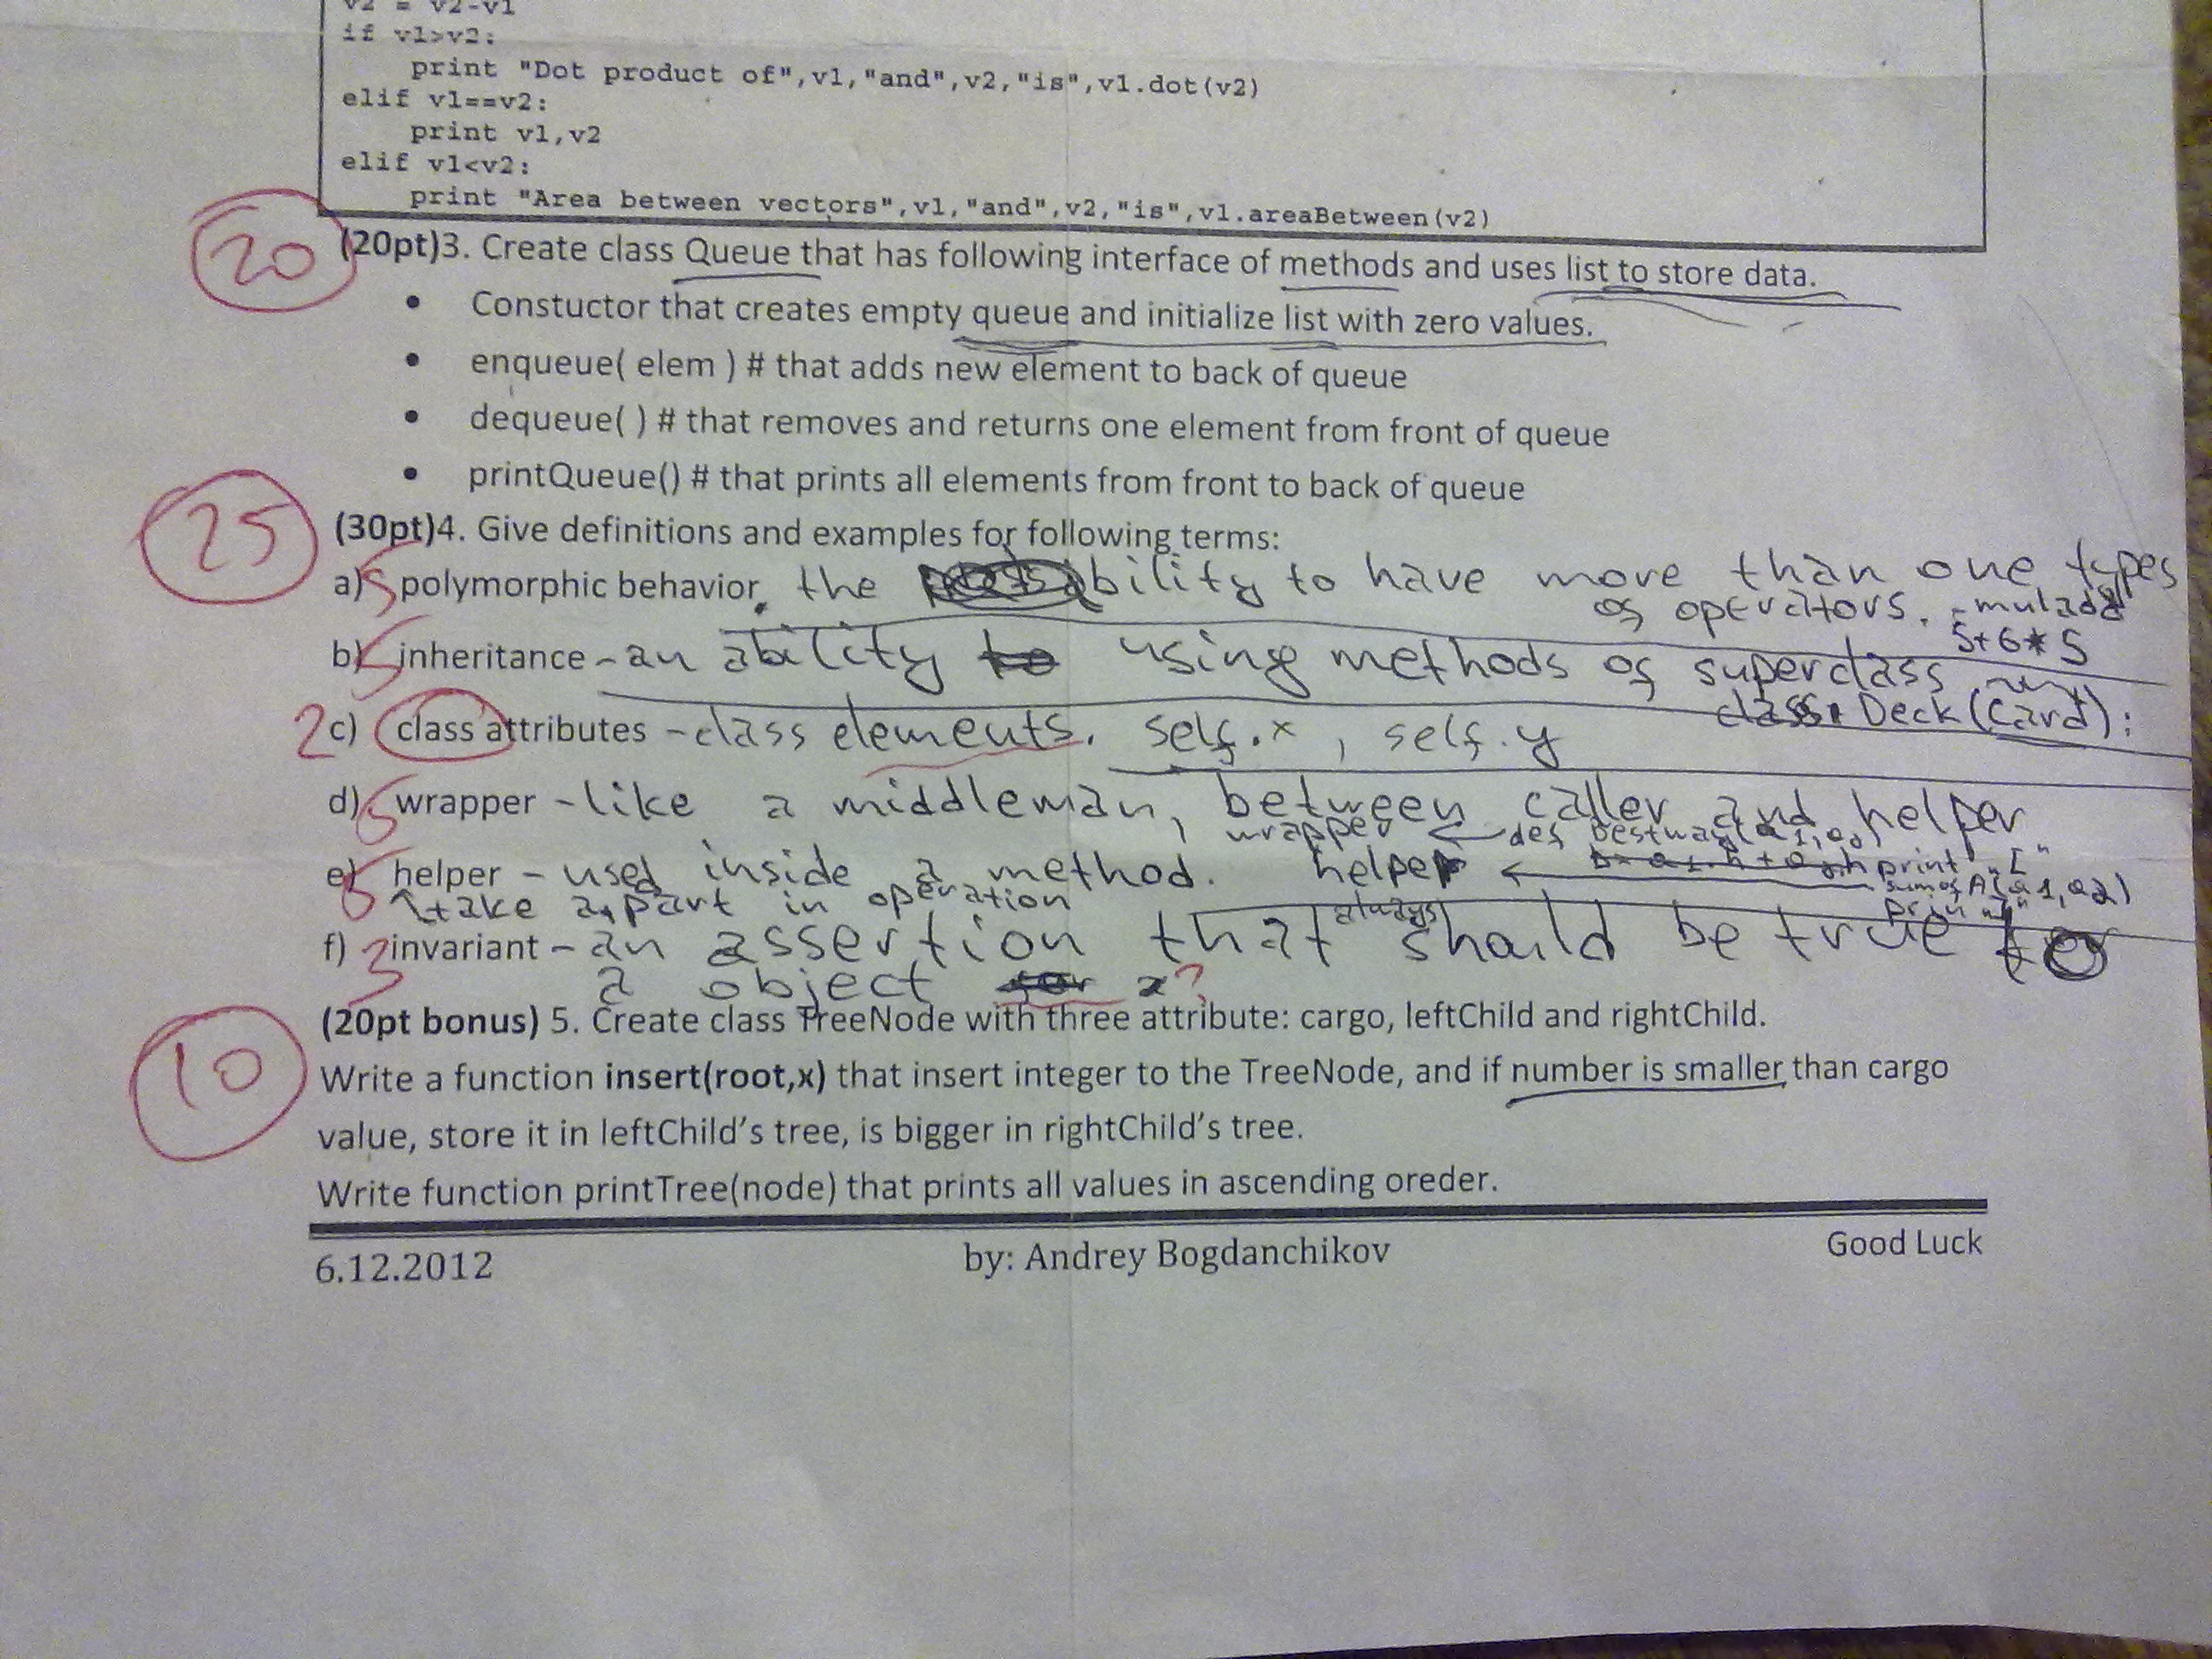 v2 = v2-v1
if v1>v2:
print "Dot product of",v1,"and",v2,"is",v1.dot(v2)
elif v1==v2:
print v1,v2
elif v1<v2:
print "Area between vectors",v1,"and",v2,"is",v1.areaBetween(v2)
20 (20pt)3. Create class Queue that has following interface of methods and uses list to store data.
• Constuctor that creates empty queue and initialize list with zero values.
• enqueue( elem ) # that adds new element to back of queue
• dequeue( ) # that removes and returns one element from front of queue
• printQueue() # that prints all elements from front to back of queue
25 (30pt)4. Give definitions and examples for following terms:
a) 5 polymorphic behavior. the ability to have more than one types
of operators. - muladd
5+6*5
b) 5 inheritance - an ability to using methods of superclass
class Deck(Card):
2 c) class attributes - class elements. self.x, self.y
d) 5 wrapper - like a middleman, between caller and helper
wrapper ← def bestway(a1,a2)
e) 5 helper - used inside a method. helper ← print "["
take a part in operation sumofA(a1,a2)
print "]"
f) 3 invariant - an assertion that always should be true to
a object for x?
10 (20pt bonus) 5. Create class TreeNode with three attribute: cargo, leftChild and rightChild.
Write a function insert(root,x) that insert integer to the TreeNode, and if number is smaller than cargo
value, store it in leftChild's tree, is bigger in rightChild's tree.
Write function printTree(node) that prints all values in ascending oreder.
6.12.2012 by: Andrey Bogdanchikov Good Luck